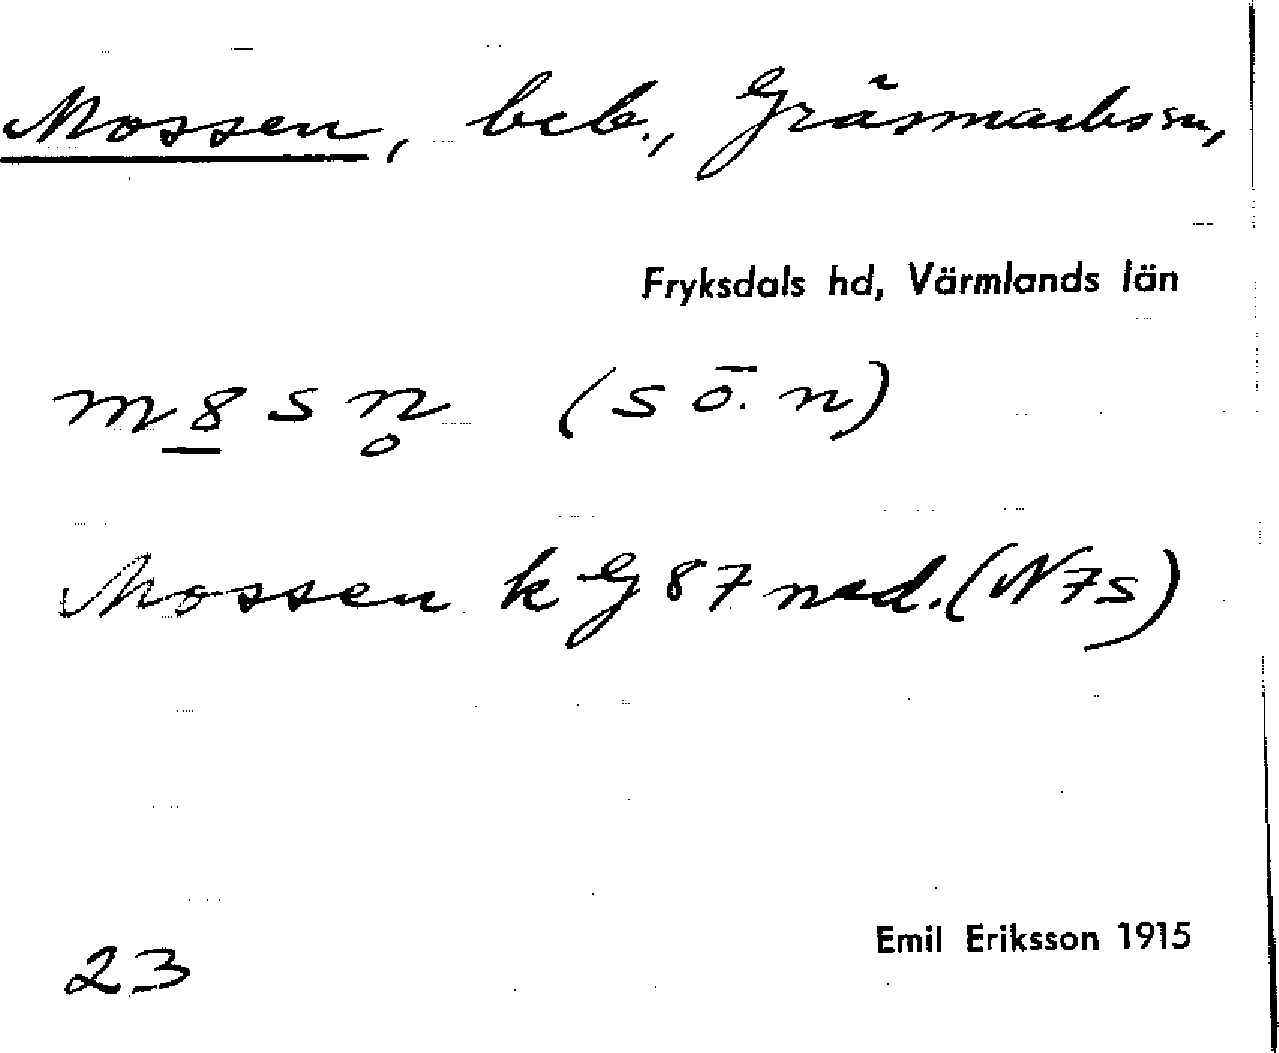 Mossen, beb., Gräsmarks sn,
Fryksdals hd, Värmlands län
m8sn̥ (sō.n)
Mossen k G 87 ned. (N7s)
Emil Eriksson 1915
23